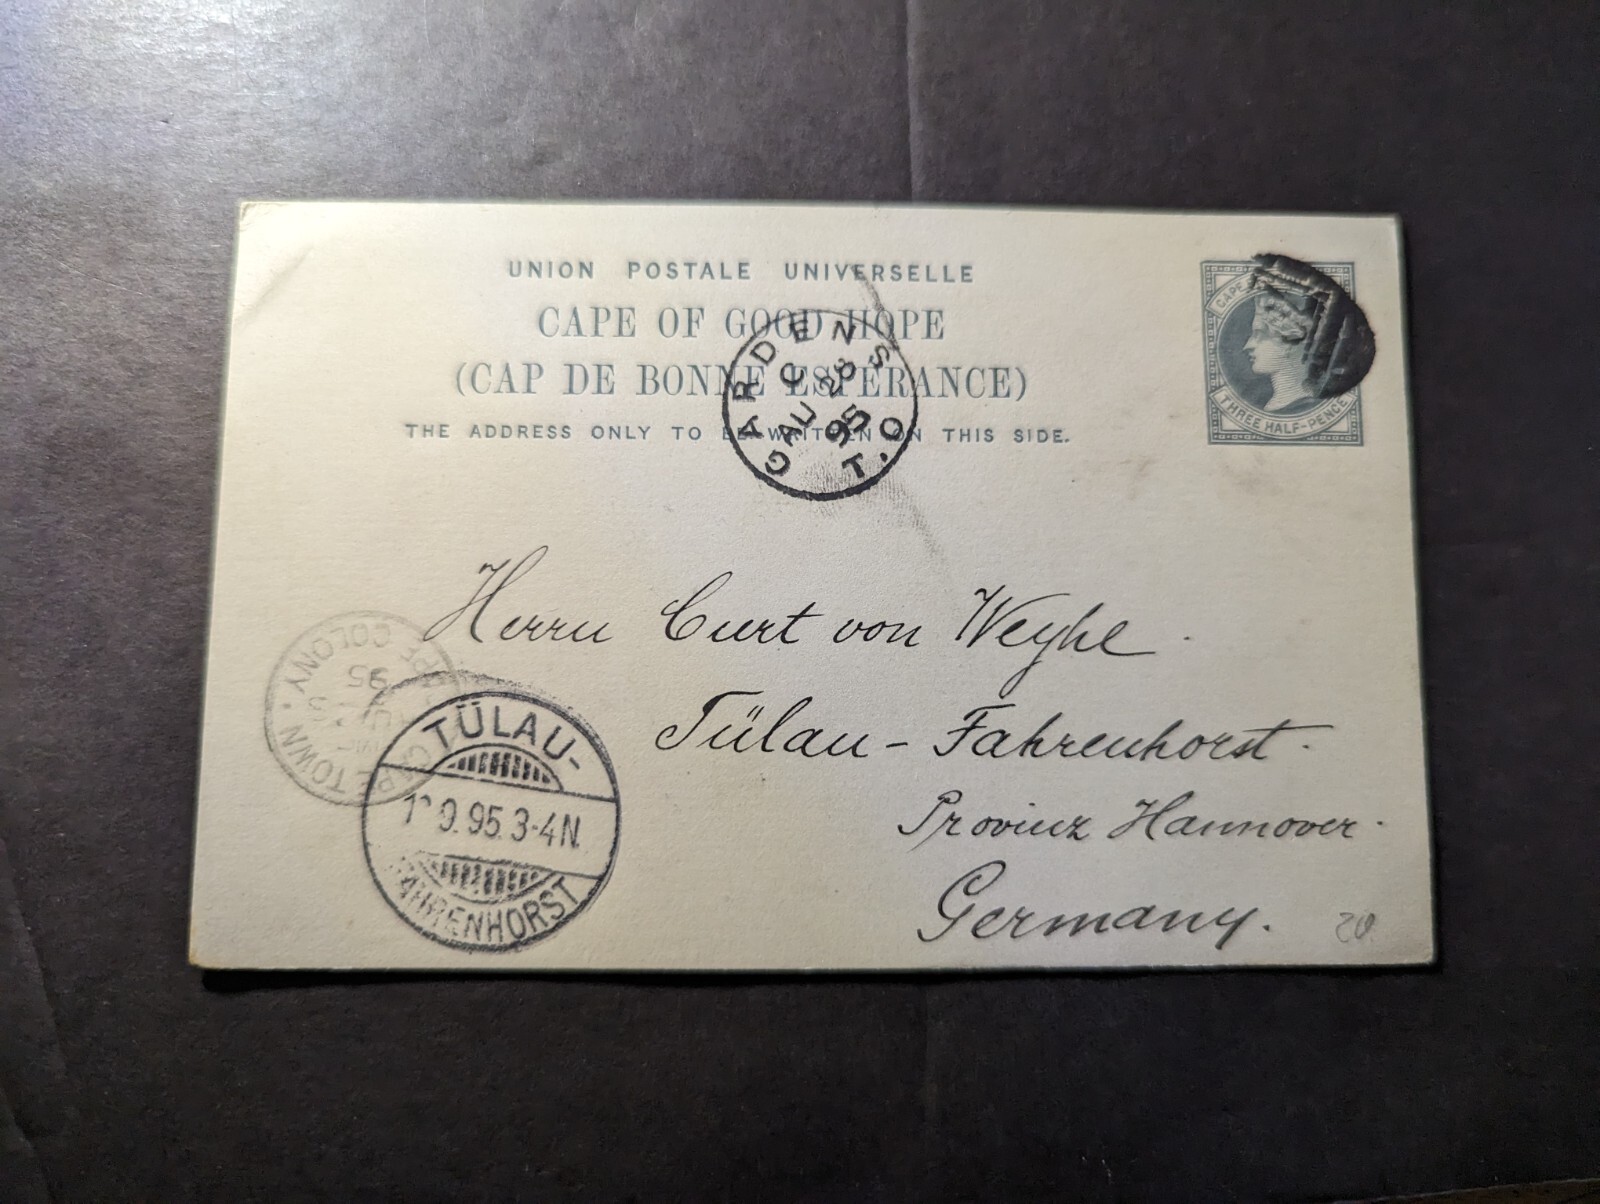 UNION POSTALE UNIVERSELLE
CAPE OF GOOD HOPE
(CAP DE BONNE ESPÉRANCE)
THE ADDRESS ONLY TO BE WRITTEN ON THIS SIDE.
CAPE
THREE HALF-PENCE
GARDENS T.O
C
AU 28
95
Herrn Curt von Weyhe
Tülau-Fahrenhorst.
Provinz Hannover.
Germany.
CAPE TOWN
COLONY
95
TÜLAU-
95. 3-4N.
FAHRENHORST
20.